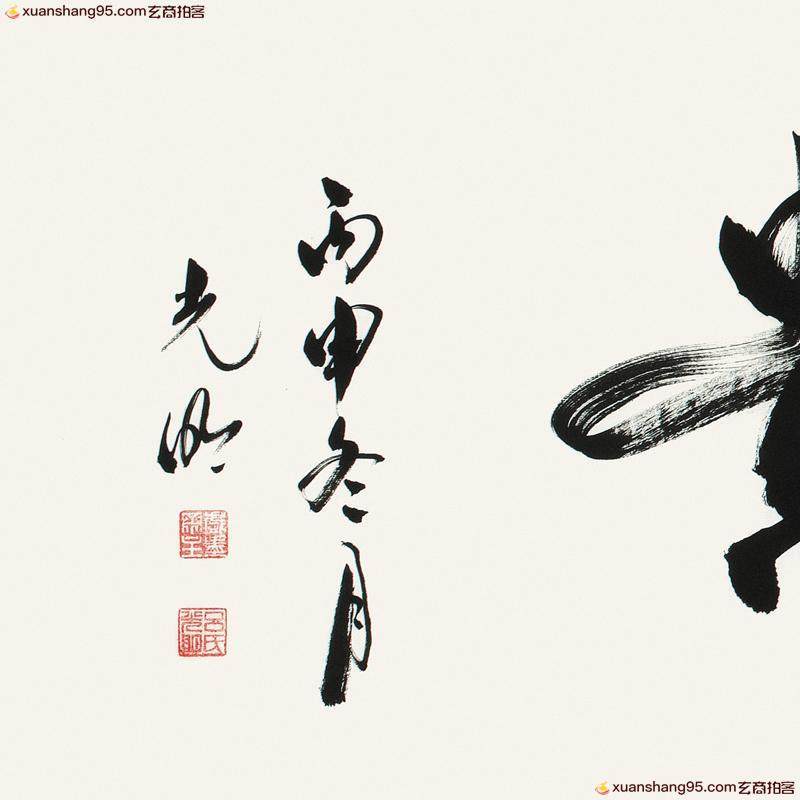 xuanshang95.com玄商拍客
丙申冬月
光明
吕氏
xuanshang95.com玄商拍客